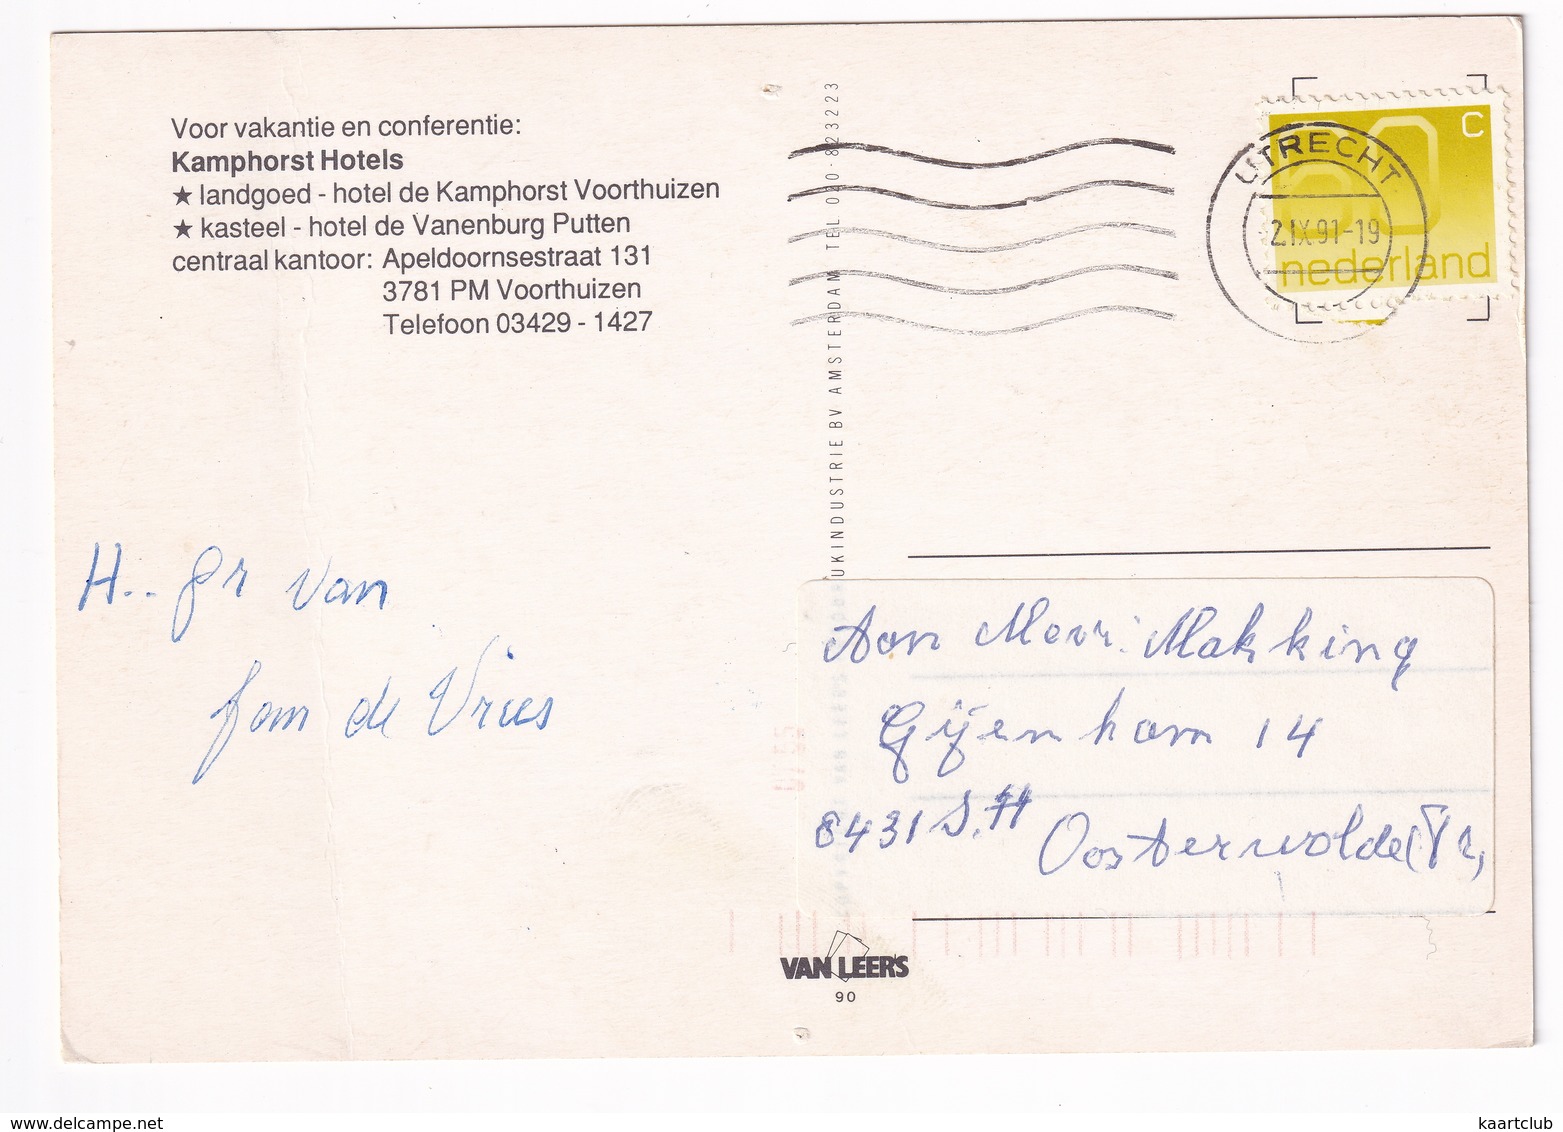 Voor vakantie en conferentie:
Kamphorst Hotels
★ landgoed - hotel de Kamphorst Voorthuizen
★ kasteel - hotel de Vanenburg Putten
centraal kantoor: Apeldoornsestraat 131
3781 PM Voorthuizen
Telefoon 03429 - 1427
UKINDUSTRIE BV AMSTERDAM TEL 020-823223
60 C
nederland
UTRECHT
2.IX.91-19
H.. gr van
Jan de Vries
Aan Mevr. Makking
Gijenham 14
8431 S.H Oosterwolde (Fr,
VAN LEERS
90
www.delcampe.net
kaartclub